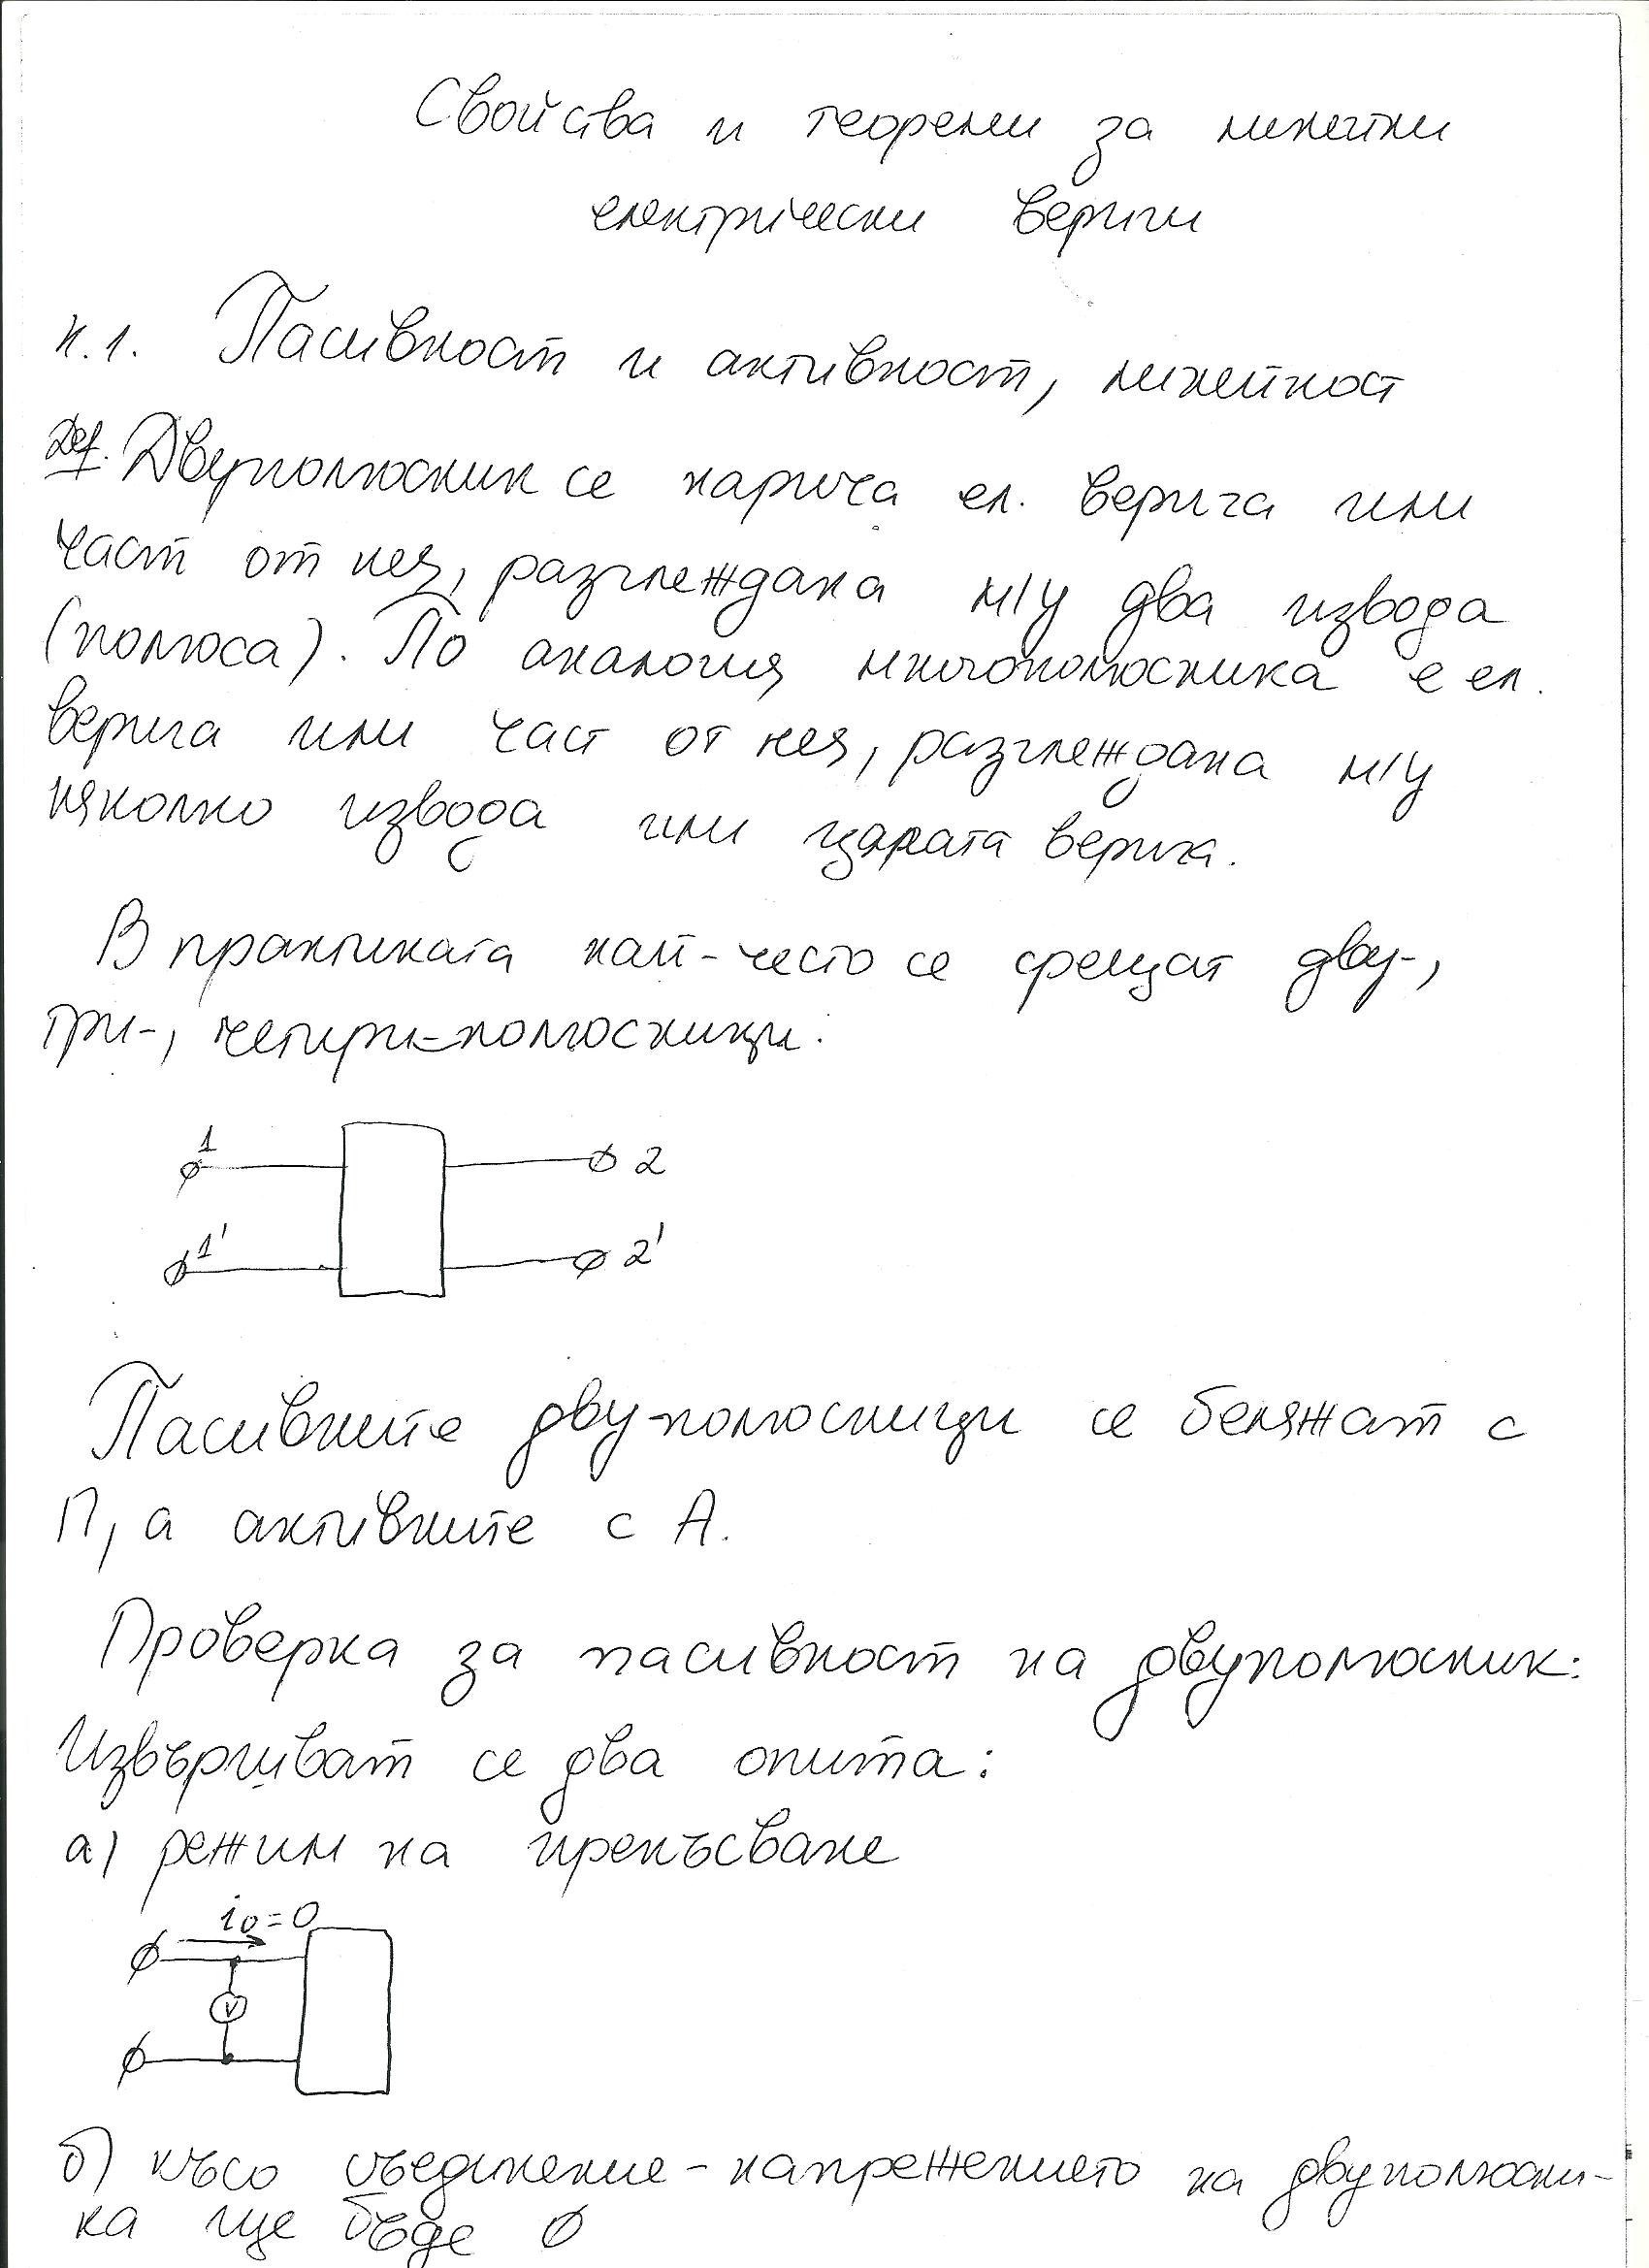 Свойства и теореми за линейни
електрически вериги
т.1. Пасивност и активност, линейност
Def. Двуполюсник се нарича ел. верига или
част от нея, разглеждана м/у два извода
(полюса). По аналогия многополюсника е ел.
верига или част от нея, разглеждана м/у
няколко извода или цялата верига.
В практиката най-често се срещат дву-,
три-, четири-полюсници.
1
2
1'
2'
Пасивните двуполюсници се бележат с
П, а активните с А.
Проверка за пасивност на двуполюсник:
Извършват се два опита:
а) режим на прекъсване
i0=0
V
б) късо съединение - напрежението на двуполюсни-
ка ще бъде 0